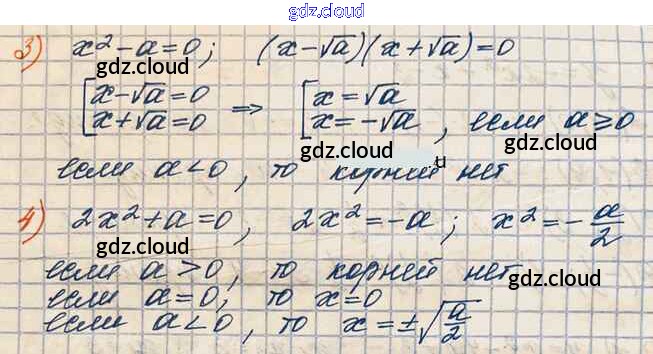 gdz.cloud
3) x² - a = 0; (x - √a)(x + √a) = 0
gdz.cloud gdz.cloud
[x - √a = 0 => [x = √a
x + √a = 0 x = -√a, если a ≥ 0
gdz.cloud gdz.cloud .u
если a < 0, то корней нет
4) 2x² + a = 0, 2x² = -a; x² = -a/2
gdz.cloud gdz.cloud
если a > 0, то корней нет
gdz.cloud
если a = 0, то x = 0
если a < 0, то x = ±√(a/2)
gdz.cloud gdz.cloud